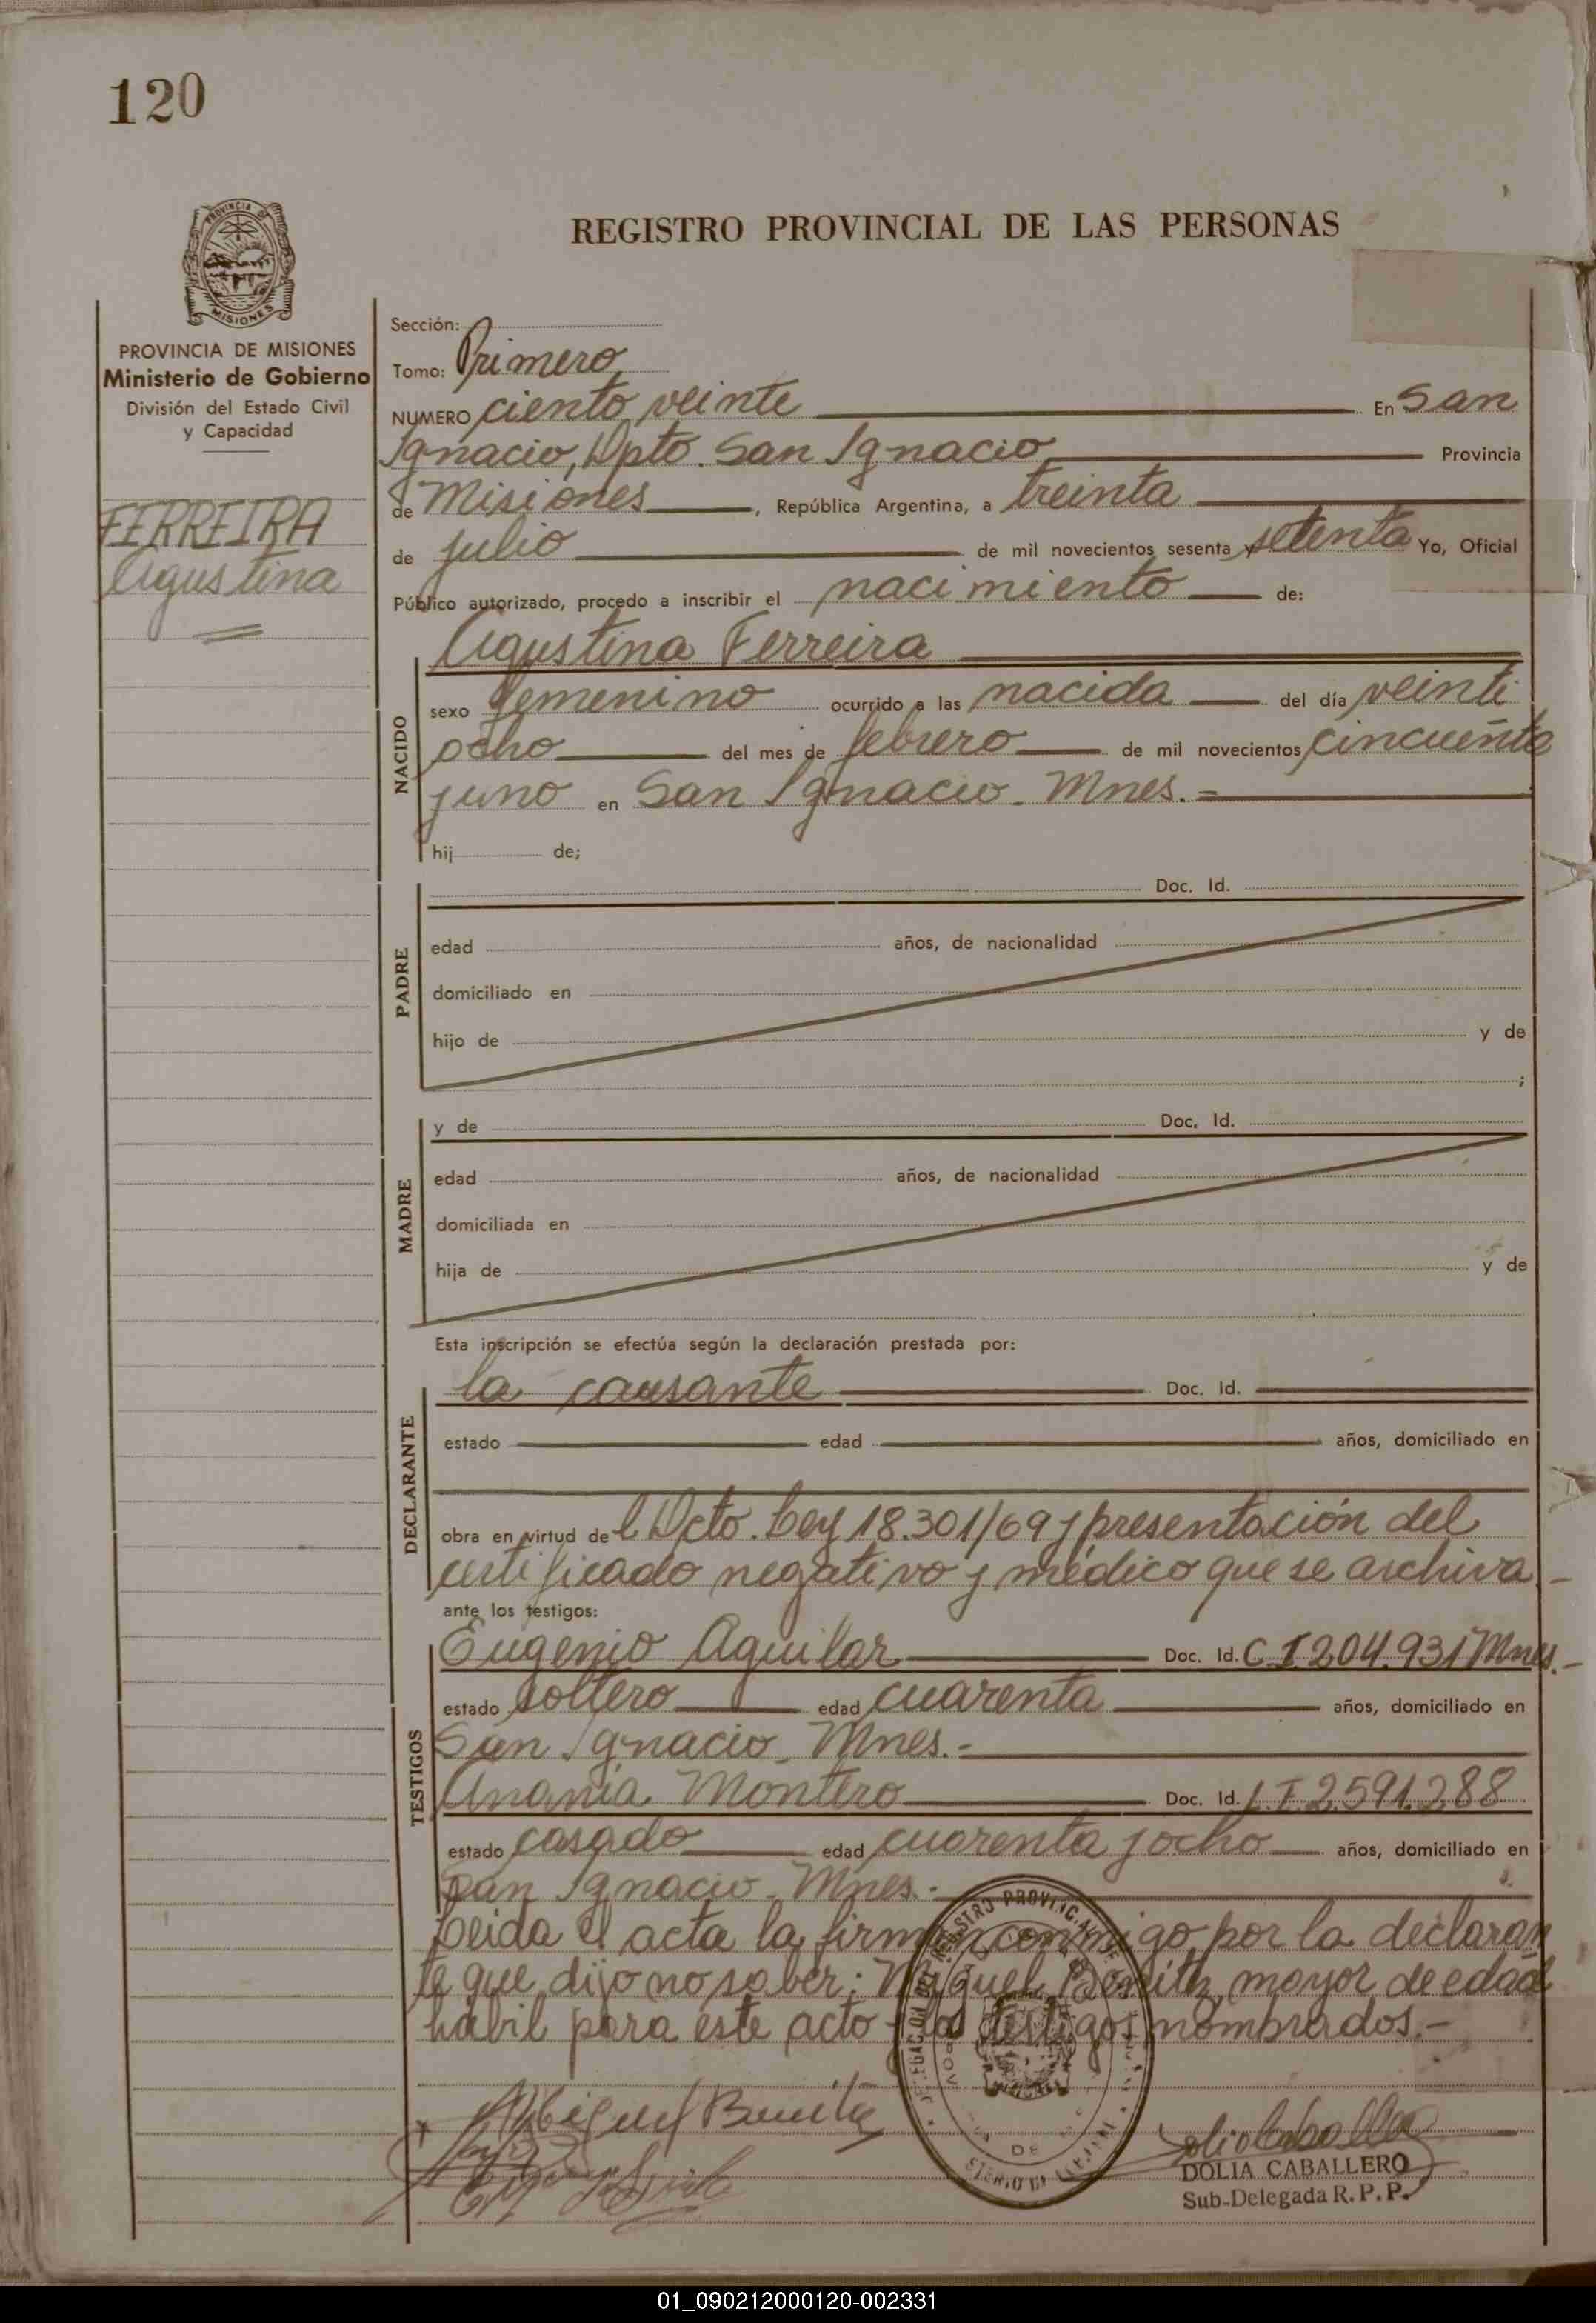 120
PROVINCIA DE
MISIONES
REGISTRO PROVINCIAL DE LAS PERSONAS
PROVINCIA DE MISIONES
Ministerio de Gobierno
División del Estado Civil
y Capacidad
FERREIRA
Agustina
Sección:
Tomo: Primero
NUMERO ciento veinte En San
Ignacio, Dpto. San Ignacio Provincia
de Misiones, República Argentina, a treinta
de julio de mil novecientos sesenta y setenta Yo, Oficial
Público autorizado, procedo a inscribir el nacimiento de:
Agustina Ferreira
NACIDO
sexo femenino ocurrido a las nacida del día veinti
ocho del mes de febrero de mil novecientos cincuenta
y uno en San Ignacio - Mnes.-
hij de;
PADRE
Doc. Id.
edad años, de nacionalidad
domiciliado en
hijo de y de
;
MADRE
y de Doc. Id.
edad años, de nacionalidad
domiciliada en
hija de y de
Esta inscripción se efectúa según la declaración prestada por:
DECLARANTE
la causante Doc. Id.
estado edad años, domiciliado en
obra en virtud de l Dcto. Ley 18.301/69 y presentación del
certificado negativo y médico que se archiva -
ante los testigos:
TESTIGOS
Eugenio Aguilar Doc. Id. C.I. 204.931 Mnes.-
estado soltero edad cuarenta años, domiciliado en
San Ignacio - Mnes.-
Anania Montero Doc. Id. L.I. 2.591.288
estado casado edad cuarenta y ocho años, domiciliado en
San Ignacio - Mnes.-
Leida el acta la firman conmigo, por la declaran
te que dijo no saber: Miguel Benitez, mayor de edad
habil para este acto y los testigos nombrados.-
Miguel Benitez
DOLIA CABALLERO
Sub-Delegada R.P.P.
01_090212000120-002331